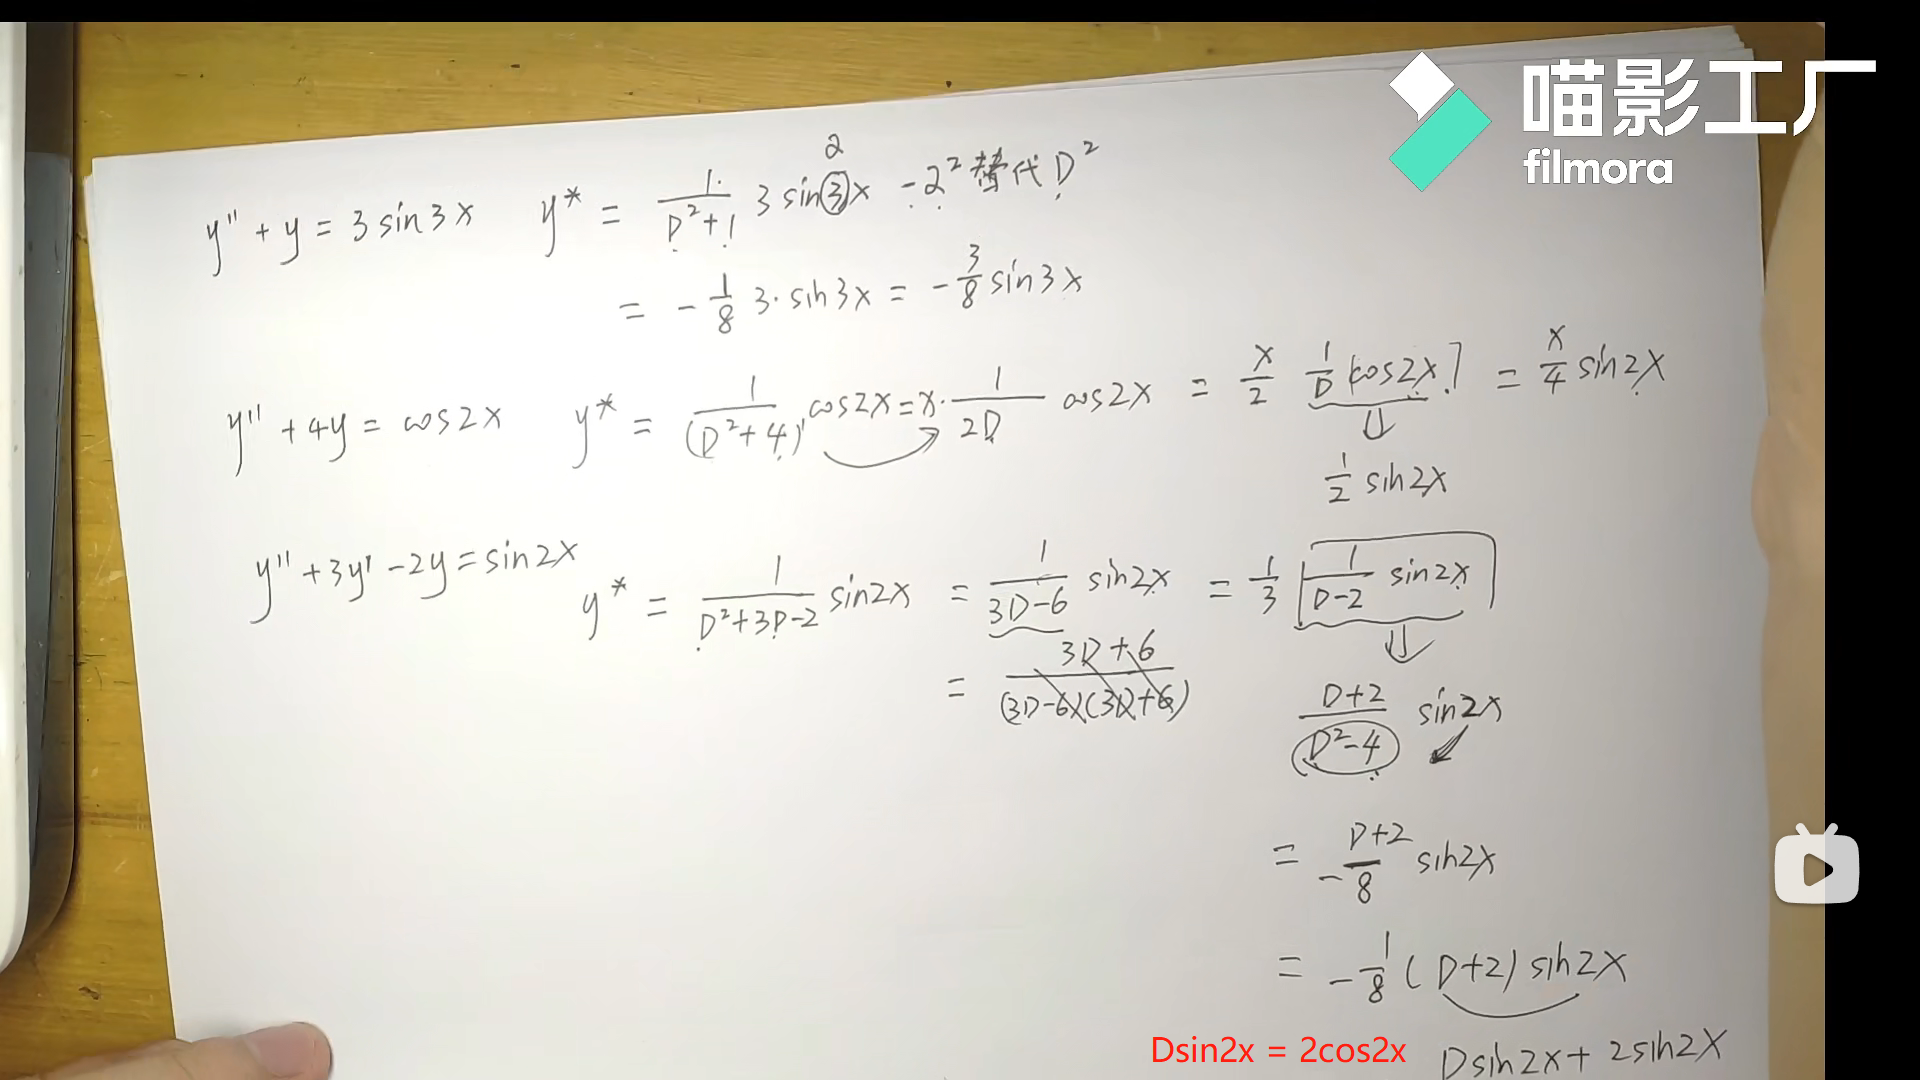 喵影工厂
filmora
y'' + y = 3 sin 3x y* = 1/(D²+1) 3 sin 3x 2 -2² 替代 D²
= - 1/8 3 · sin 3x = - 3/8 sin 3x
y'' + 4y = cos 2x y* = 1/(D²+4)' cos 2x = x · 1/(2D) cos 2x = x/2 1/D [cos 2x] = x/4 sin 2x
⇓
1/2 sin 2x
y'' + 3y' - 2y = sin 2x
y* = 1/(D²+3D-2) sin 2x = 1/(3D-6) sin 2x = 1/3 [1/(D-2) sin 2x]
⇓
= (3D+6)/((3D-6)(3D+6))
(D+2)/(D²-4) sin 2x
= (D+2)/(-8) sin 2x
= - 1/8 (D+2) sin 2x
Dsin2x = 2cos2x
D sin 2x + 2 sin 2x